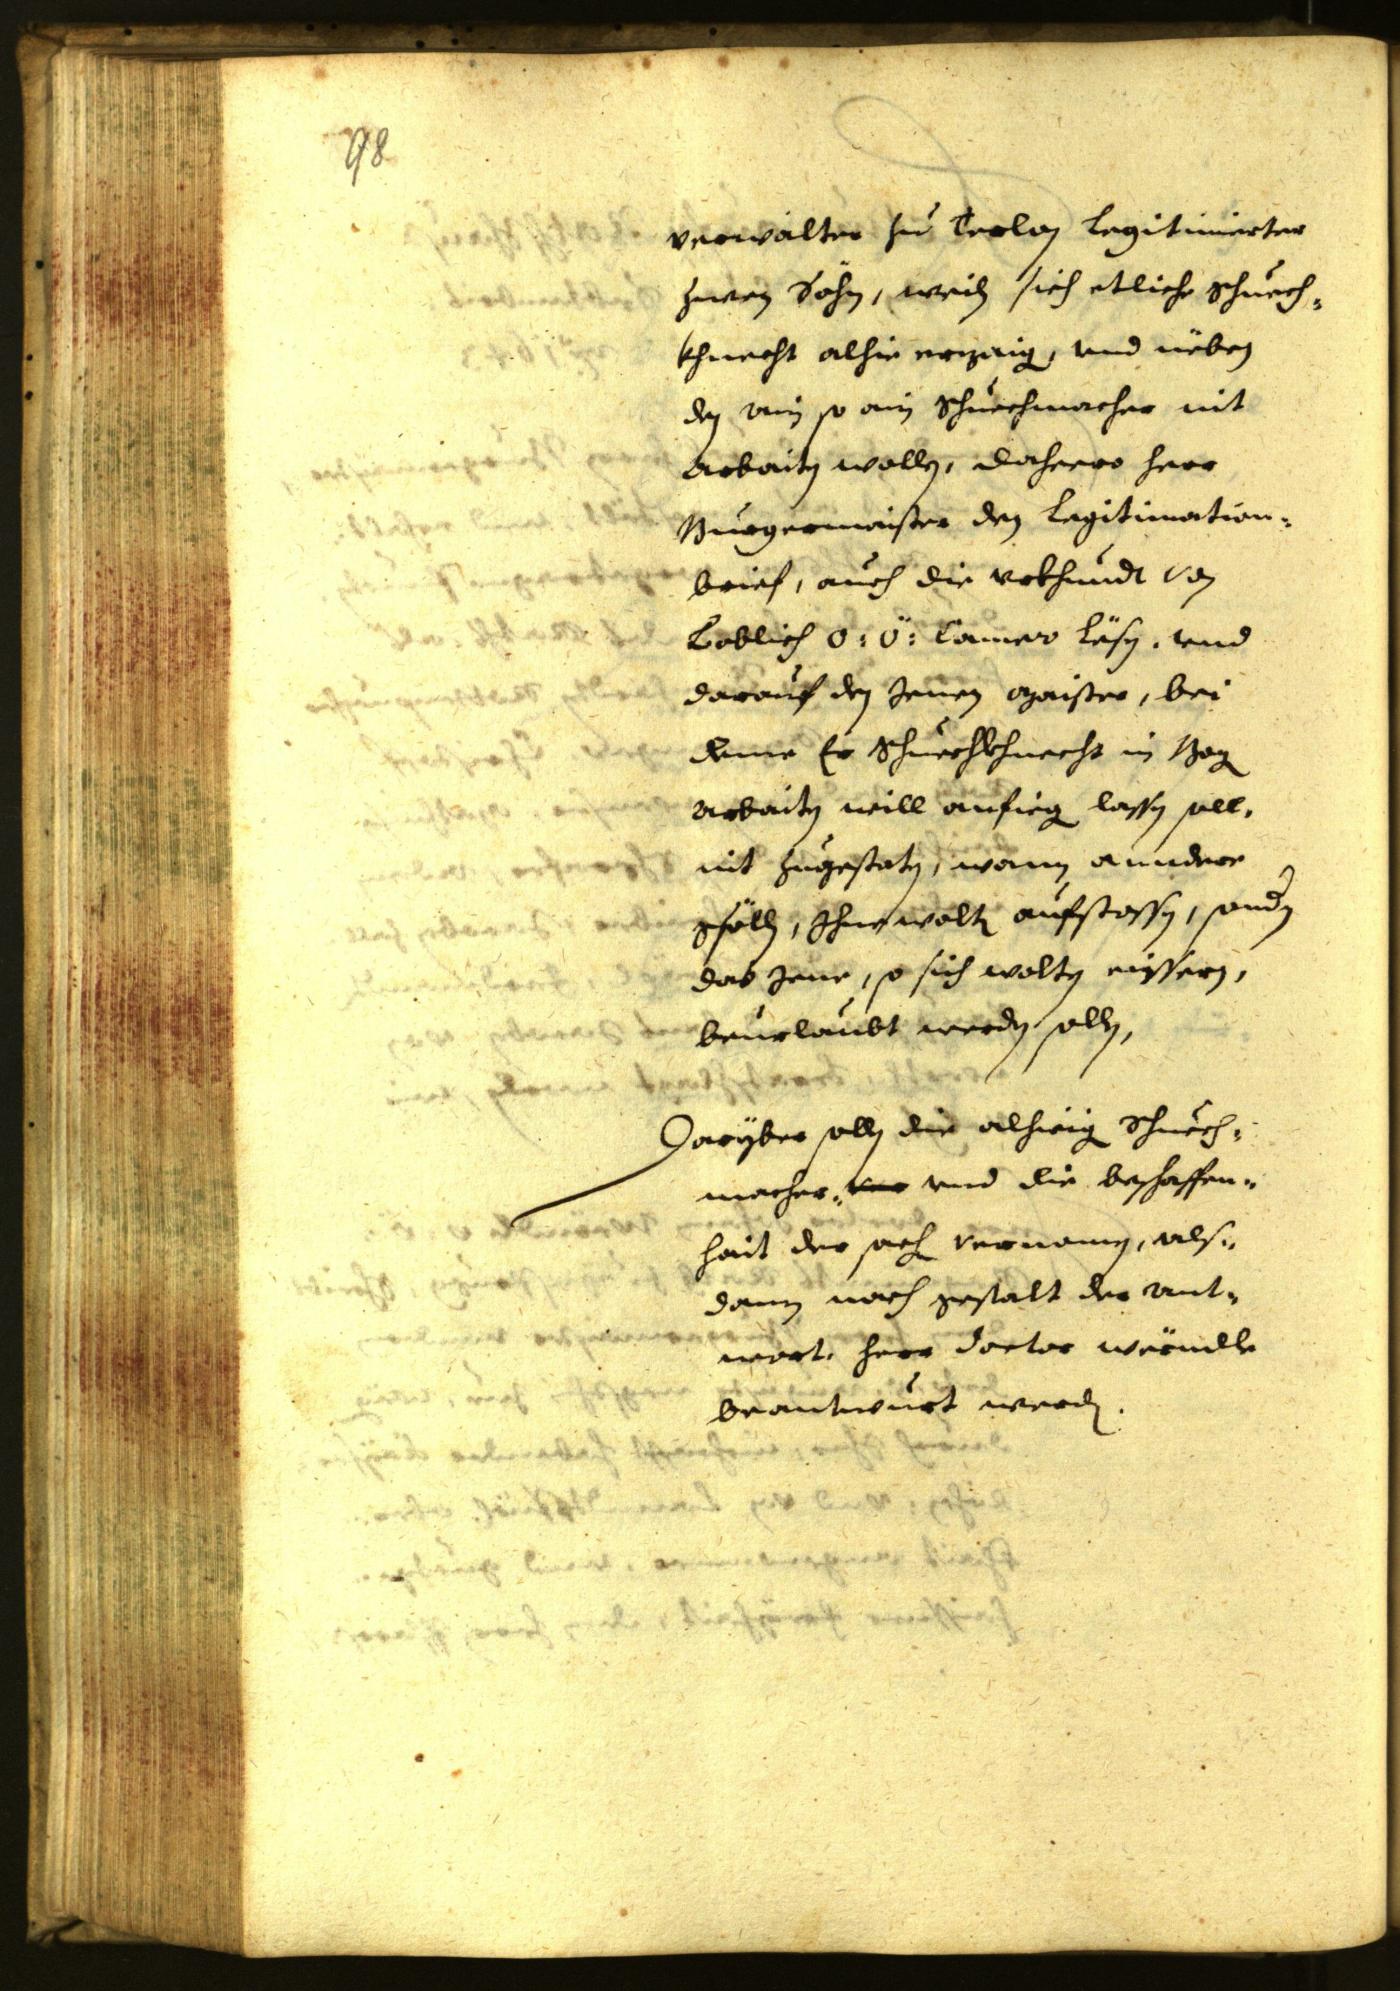 98
verwalter zu Terlan Legitimierter
zwen Söhn, weilh sich etliche Schuech-
khnecht alhie erzaig, und neben
den ain so ain Schuechmacher nit
arbaiten wollen, dahero herr
Burgermaister den Legitimation-
brief, auch die Urkhundt von
Loblich O: Ö: Camer lesen, und
darauf den Jenen maister, bei
deme Er Schuechkhnecht in Bozn
arbaiten will anfieg lassen soll,
nit zugestaten, wann anndere
gsöllen, Ihne wolten aufstossen, sondern
das Jene, so sich wolten eissern,
beurlaubt werden sollen,
Darüber sollen die alhieig Schuech-
macher und die beschaffen-
hait der sach vernomen, als-
dann nach gestalt der ant-
wort, herr doctor Weündle
beantwurt werden.